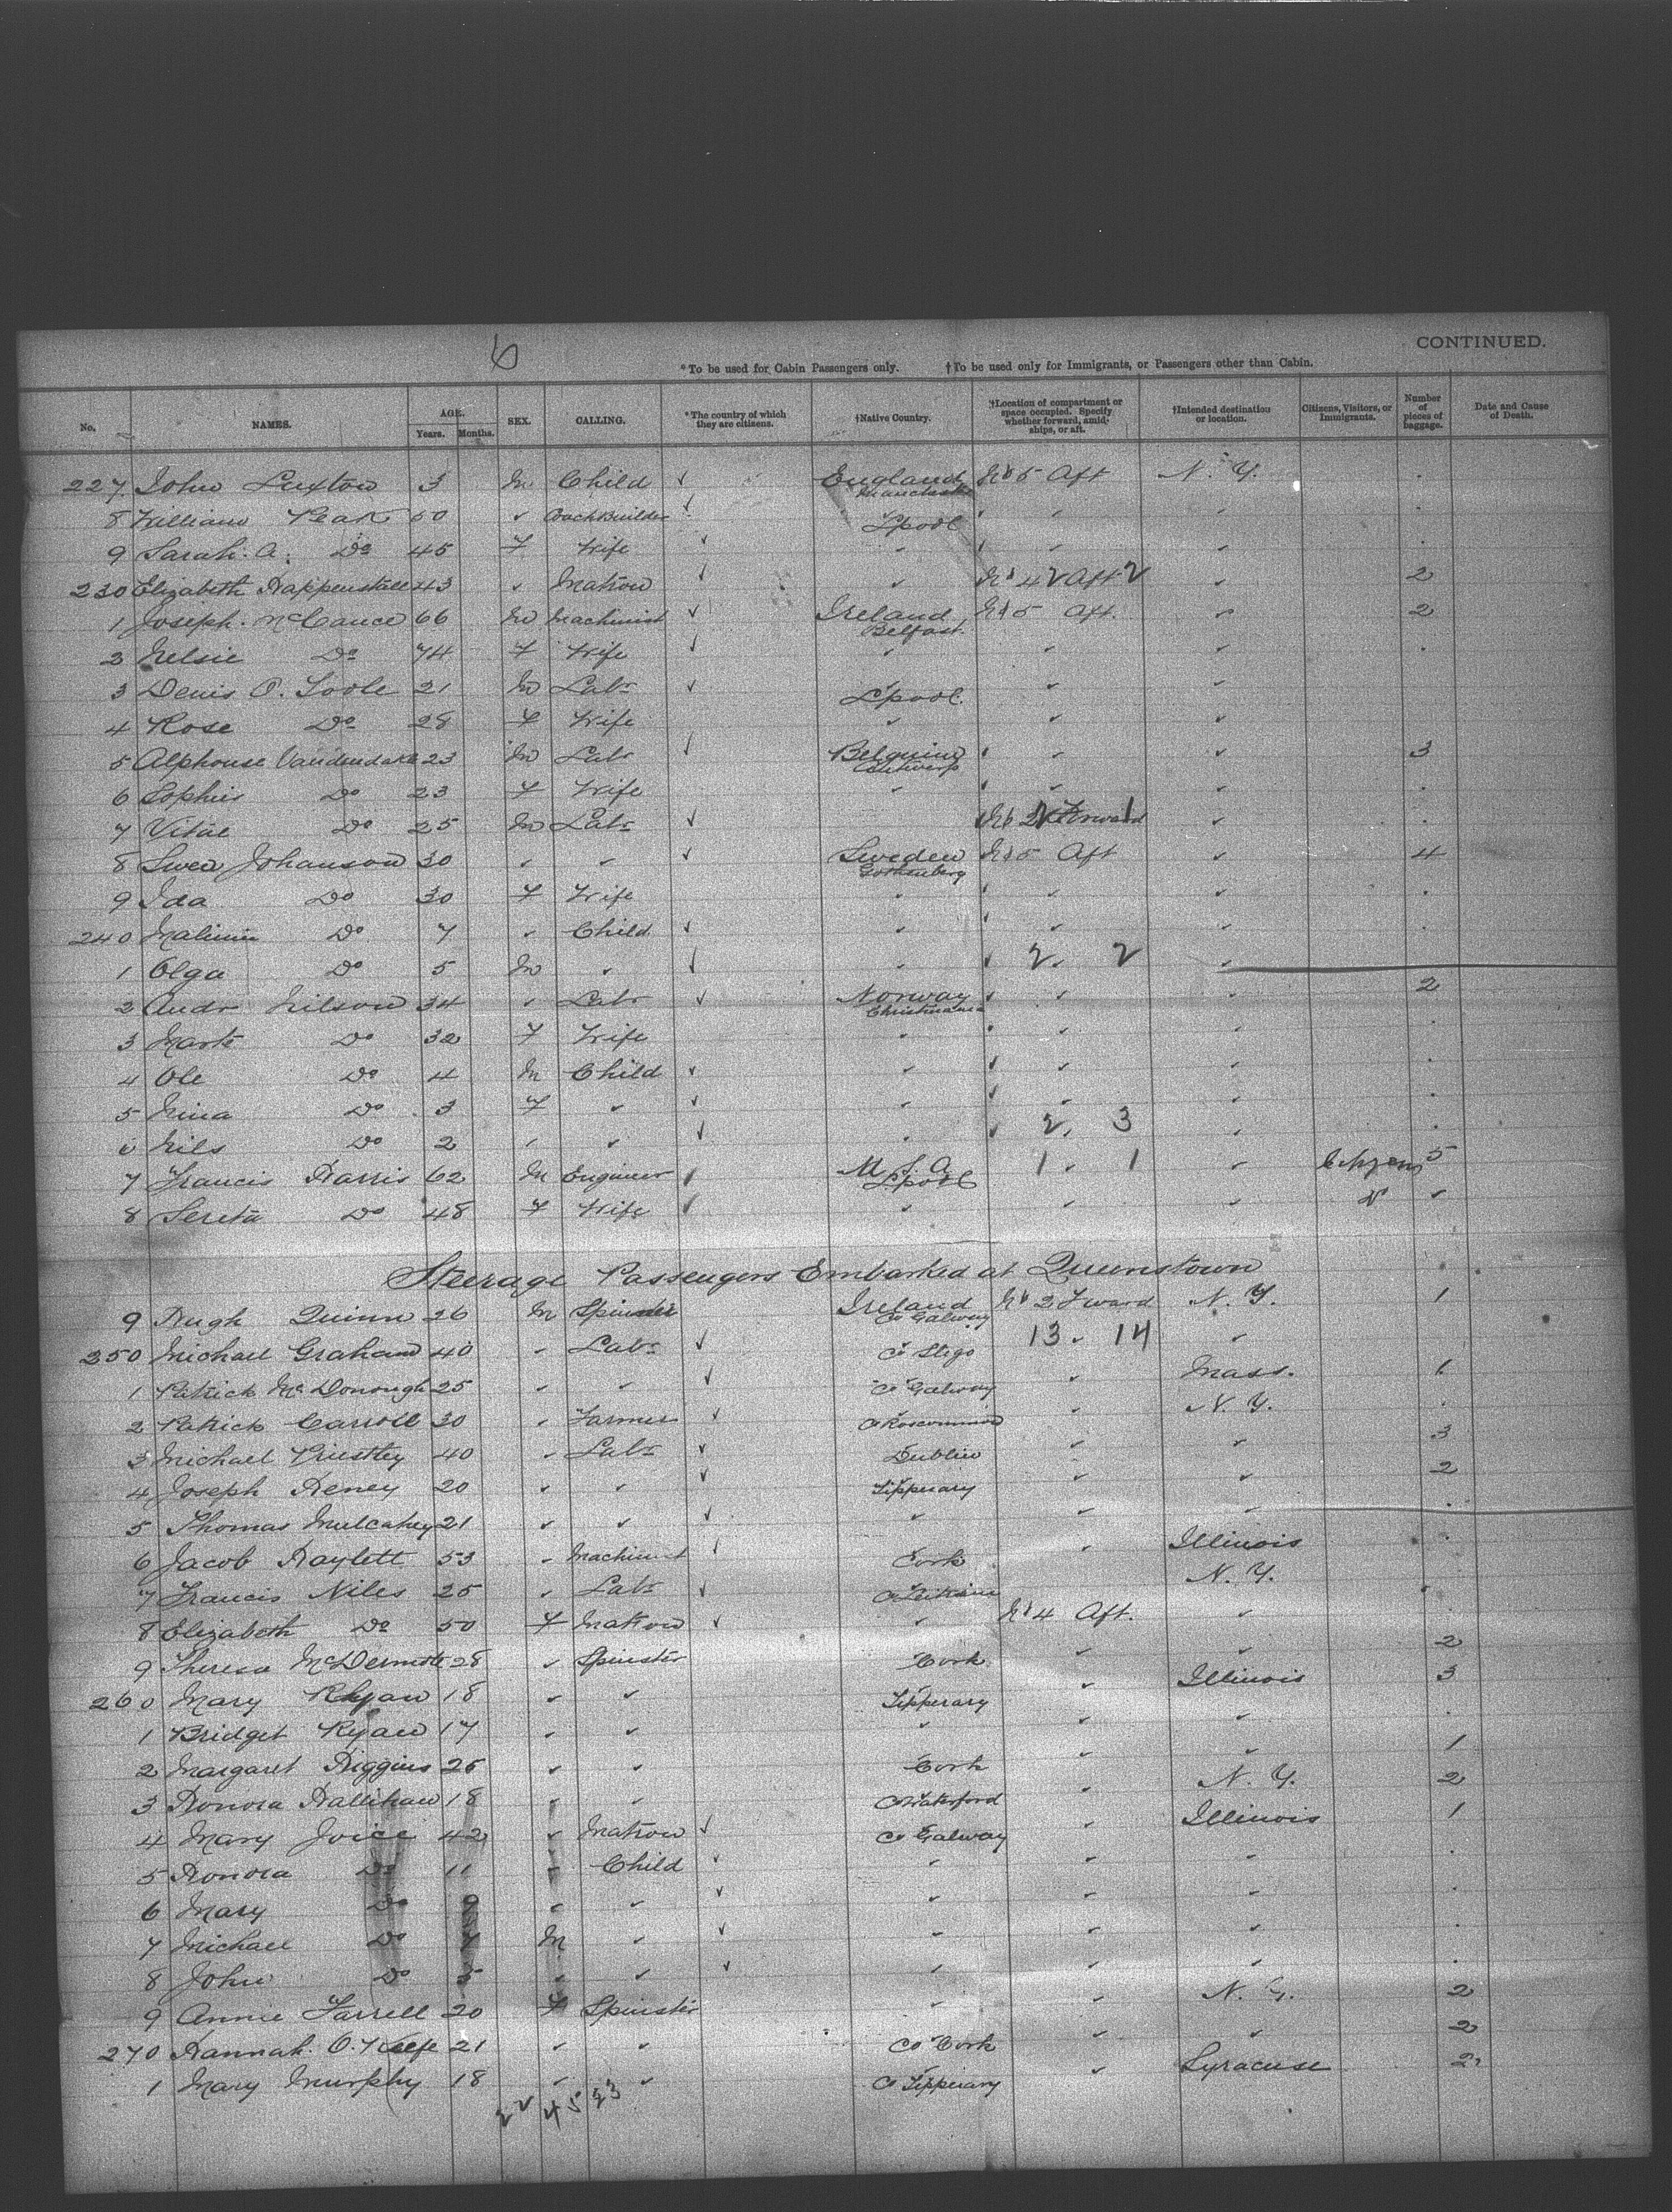 6
CONTINUED.
*To be used for Cabin Passengers only. †To be used only for Immigrants, or Passengers other than Cabin.
No. NAMES. AGE. Years. Months. SEX. CALLING. *The country of which they are citizens. †Native Country. †Location of compartment or space occupied. Specify whether forward, amidships, or aft. †Intended destination or location. Citizens, Visitors, or Immigrants. Number of pieces of baggage. Date and Cause of Death.
227 John Luxton 3 M Child ✓ England Manchester No 5 Aft N. Y.
8 William Peak 50 ✓ Coach Builder ✓ L'pool ✓ ✓
9 Sarah. A. Do 45 F Wife ✓ ✓ ✓ ✓
230 Elizabeth Happenstall 43 ✓ Matron ✓ ✓ No 4 Aft 2 ✓ 2
1 Joseph. McCance 66 M Machinist ✓ Ireland Belfast. No 5 Aft. ✓ 2
2 Do 74 F Wife ✓ ✓ ✓ ✓
3 Denis O. Toole 21 M Labr ✓ L'pool. ✓ ✓
4 Rose Do 28 F Wife ✓ ✓ ✓
5 Alphonse 23 M Labr ✓ Belguim Antwerp ✓ ✓ 3
6 Sophie Do 23 F Wife ✓ ✓ ✓
7 Do 25 M Labr ✓ No 2 Forward ✓
8 Swen Johanson 30 ✓ ✓ ✓ Sweden Gothenberg No 5 Aft ✓ 4
9 Ida Do 30 F Wife ✓ ✓ ✓
240 Do 7 ✓ Child ✓ ✓ ✓ ✓
1 Olga Do 5 M ✓ ✓ ✓ 2. 2 ✓
2 Andr Nilson 34 ✓ Labr ✓ Norway Christiania ✓ ✓ 2
3 Do 32 F Wife ✓ ✓ ✓
4 Ole Do 4 M Child ✓ ✓ ✓ ✓
5 Nina Do 3 F ✓ ✓ ✓ ✓
6 Nils Do 2 ✓ ✓ ✓ ✓ 2. 3 ✓
7 Francis Harris 62 M Engineer U. S. A. L'pool 1 - 1 ✓ Citizens 5
8 Do 48 F Wife ✓ ✓ ✓ ✓
Steerage Passengers Embarked at Queenstown
9 Hugh Quinn 26 M Ireland Co Galway No 2 F'ward N. Y. 1
250 Michael Graham 40 ✓ Labr ✓ Co Sligo 13 - 14 ✓
1 Patrick McDonough 25 ✓ ✓ ✓ Co Galway ✓ Mass. 1
2 Patrick Carroll 30 ✓ Farmer ✓ Co Roscommon ✓ N. Y.
3 Michael Priestley 40 ✓ Labr ✓ Dublin ✓ ✓ 3
4 Joseph Heney 20 ✓ ✓ ✓ Tipperary ✓ ✓ 2
5 Thomas Mulcahey 21 ✓ ✓ ✓ ✓ ✓ ✓
6 Jacob Haylett 53 ✓ Machinist ✓ Cork ✓ Illinois
7 Francis Niles 25 ✓ Labr ✓ Co Leitrim N. Y.
8 Elizabeth Do 50 F Matron ✓ ✓ No 4 Aft. ✓
9 Theresa McDermott 28 ✓ Spinster Cork ✓ ✓ 2
260 Mary Rhyan 18 ✓ ✓ Tipperary ✓ Illinois 3
1 Bridget Ryan 17 ✓ ✓ ✓ ✓ ✓
2 Margaret Higgins 25 ✓ ✓ Cork ✓ ✓ 1
3 Honora Hallihan 18 ✓ ✓ Co Waterford ✓ N. Y. 2
4 Mary Joice 42 ✓ Matron ✓ Co Galway ✓ Illinois 1
5 Honora Do 11 ✓ Child ✓ ✓ ✓ ✓
6 Mary Do 9 ✓ ✓ ✓ ✓ ✓ ✓
7 Michael Do 7 M ✓ ✓ ✓ ✓ ✓
8 John Do 5 ✓ ✓ ✓ ✓ ✓ ✓
9 Annie Farrell 20 F Spinster ✓ ✓ N. Y. 2
270 Hannah. O. Keefe 21 ✓ ✓ Co Cork ✓ ✓ 2
1 Mary Murphy 18 ✓ ✓ Co Tipperary ✓ Syracuse 2